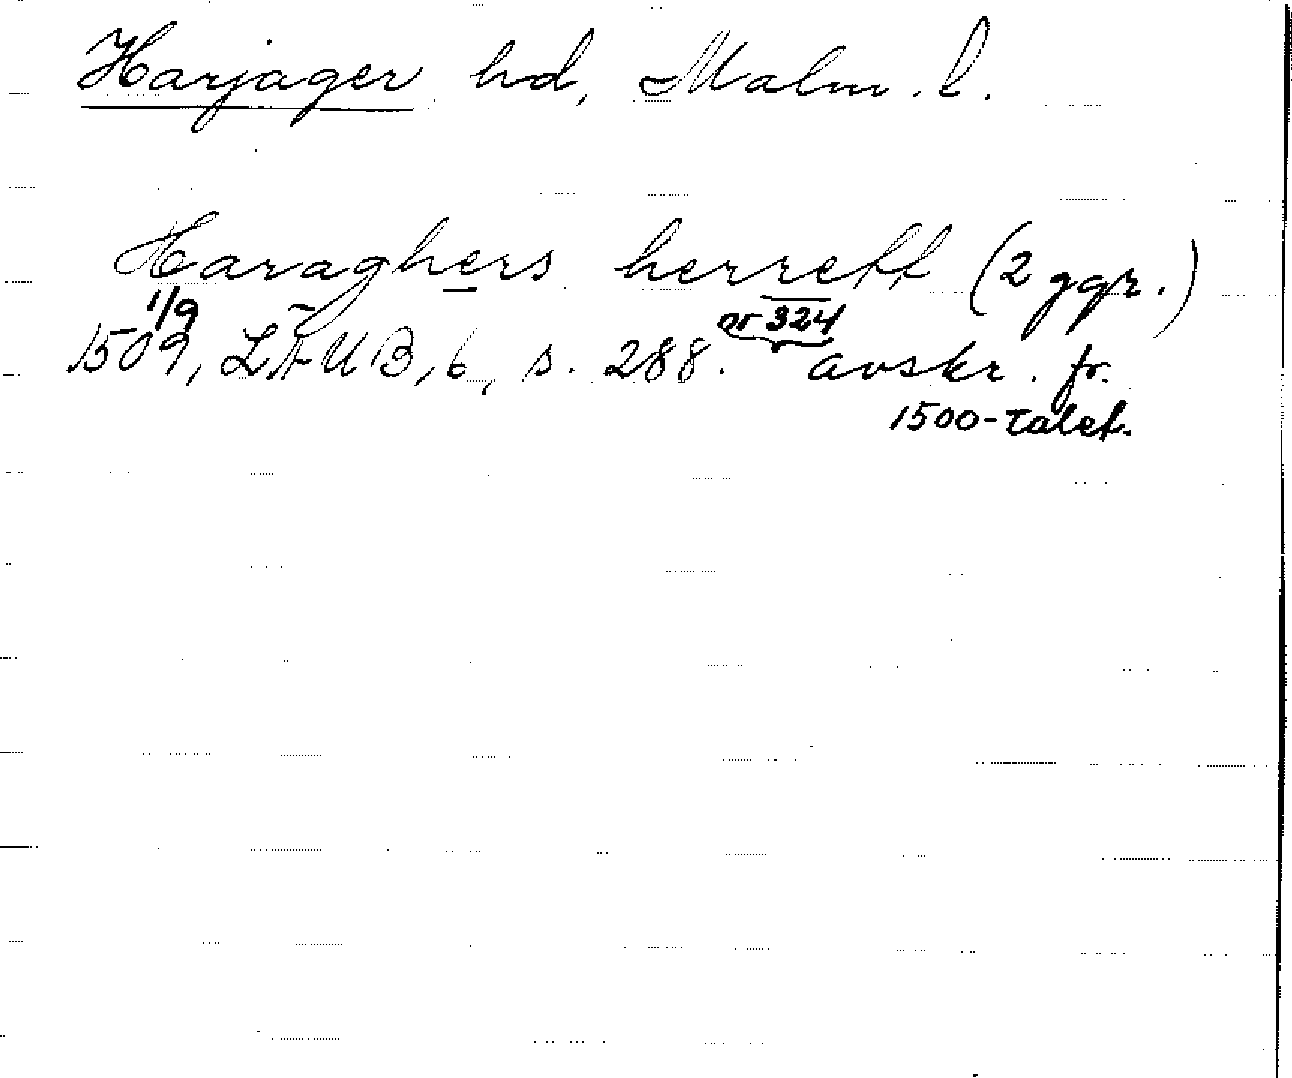 Harjager hd, Malm. l.
Haraghers herrett (2 ggr.)
1/9 nr 324
1509, LÄUB, 6, s. 288. avskr. fr.
1500-talet.